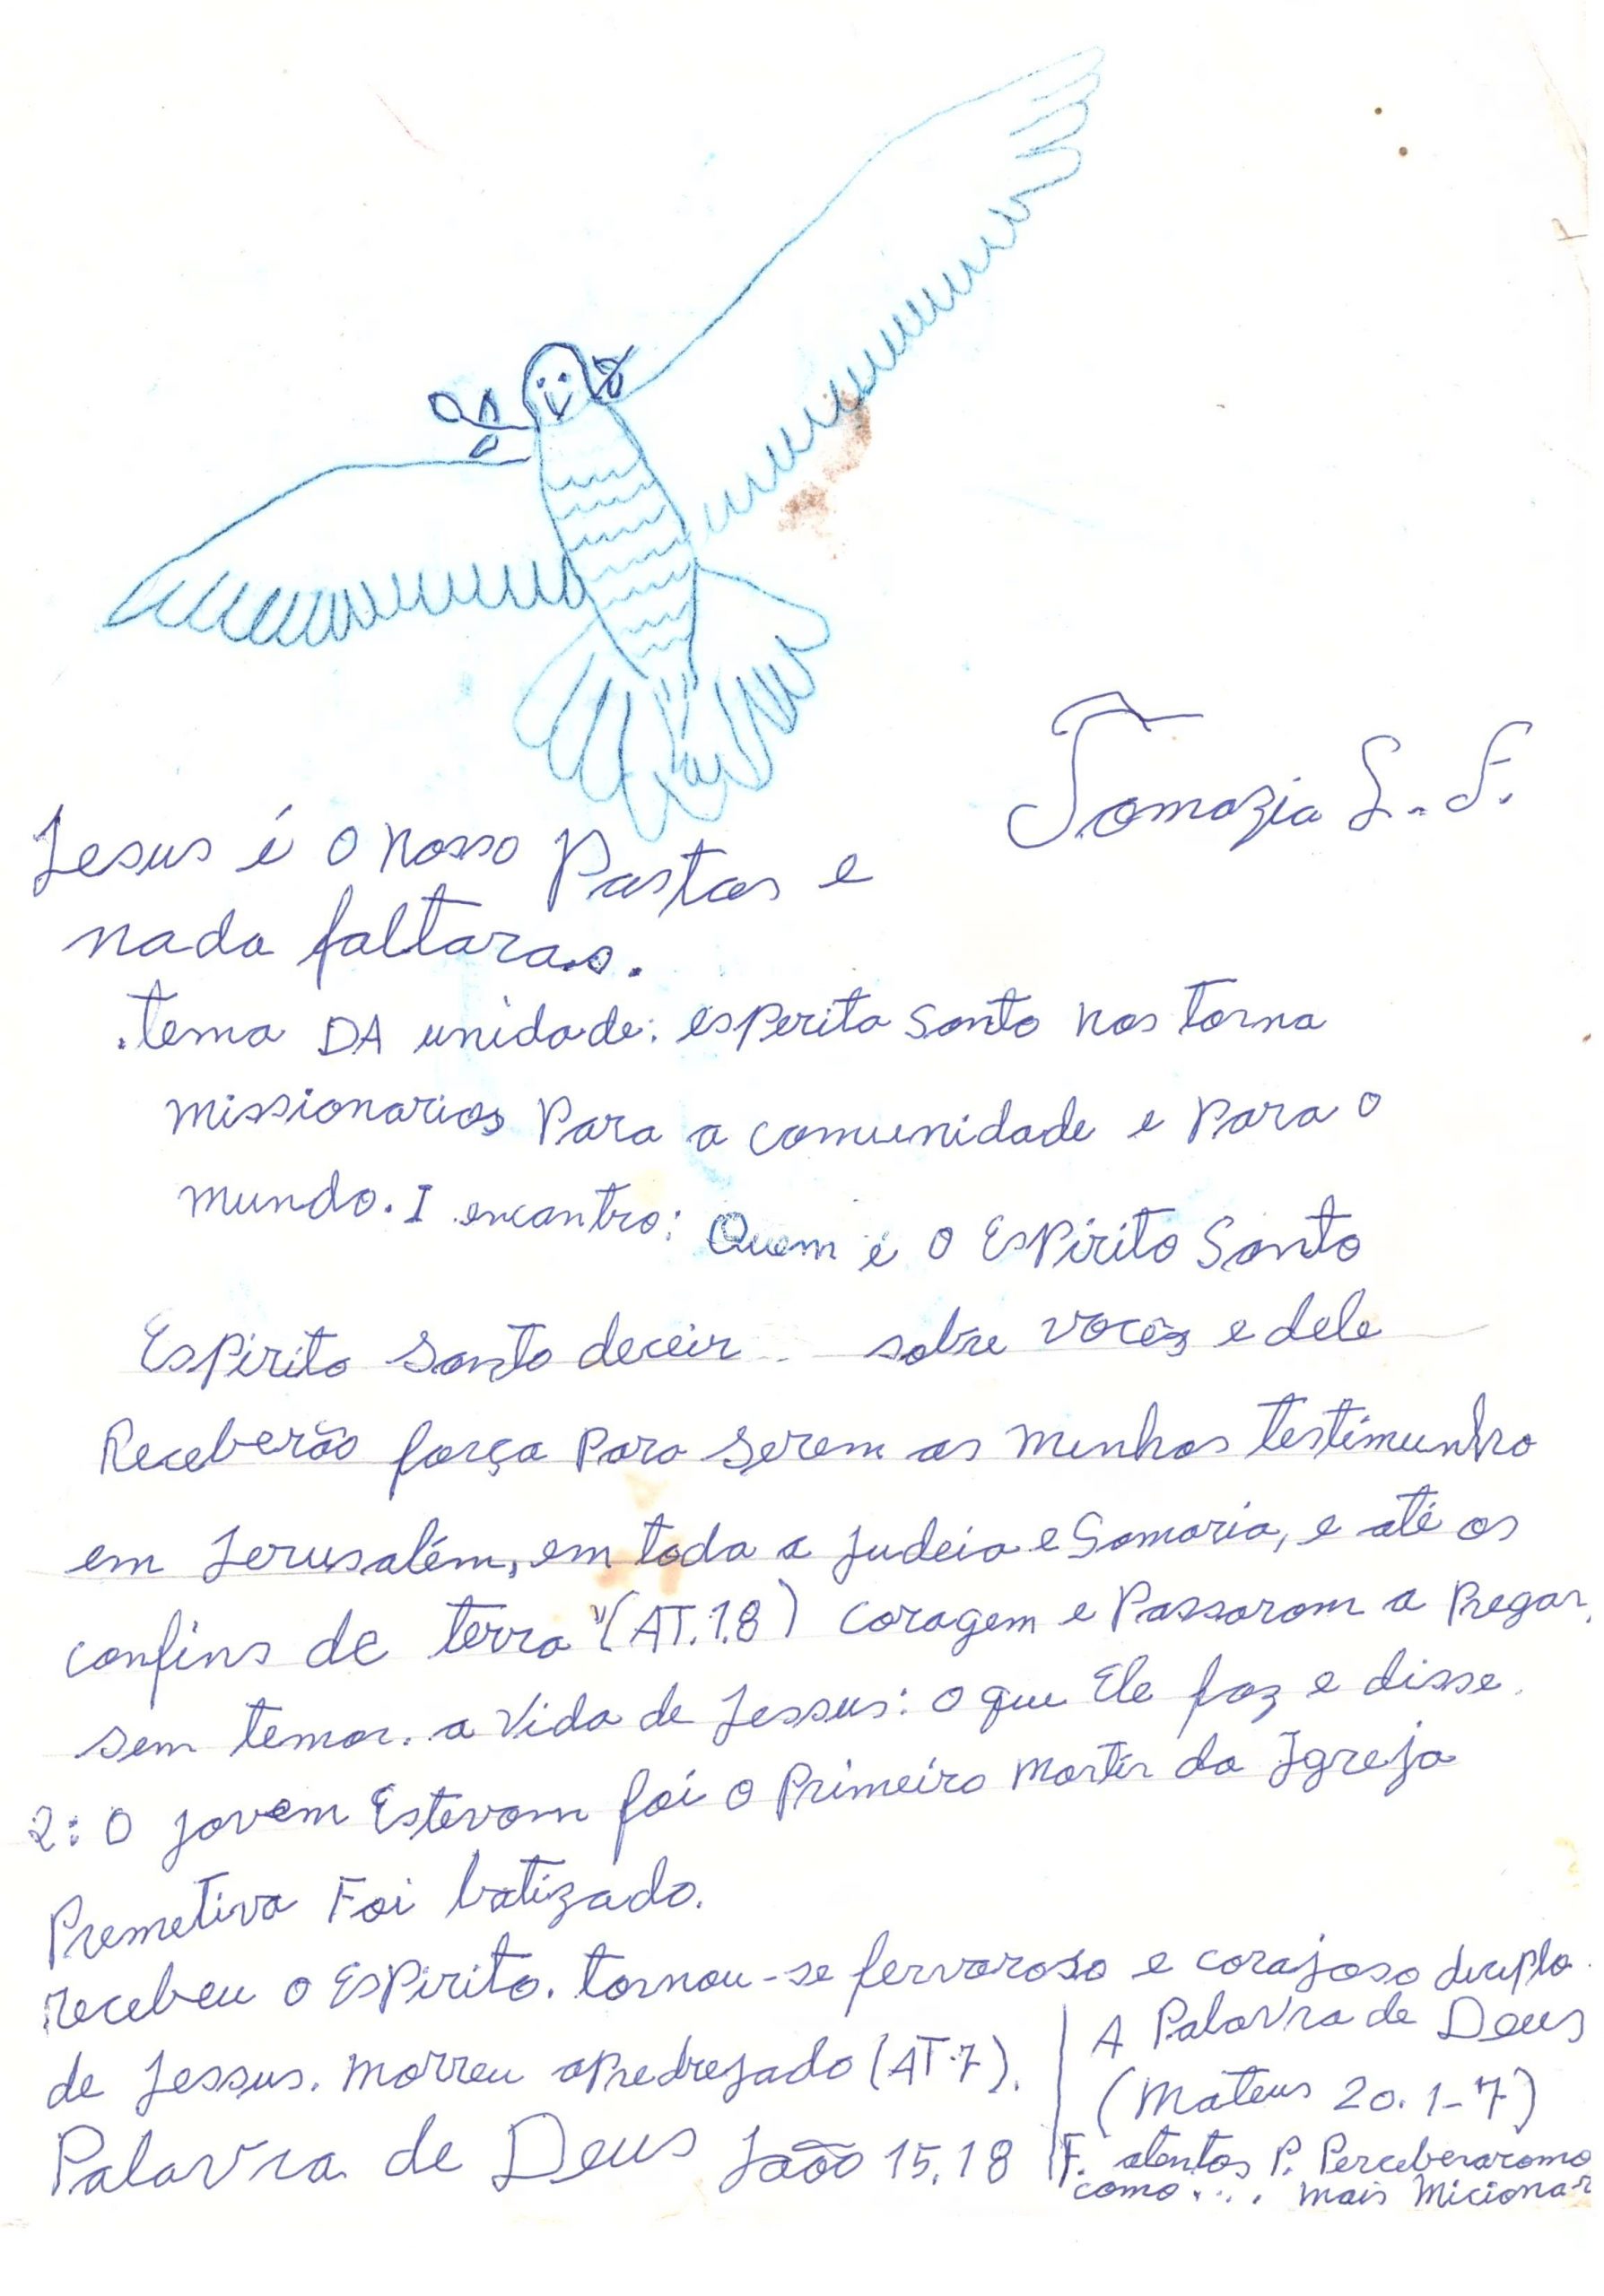 Tomazia L. F.
Jesus é o nosso Pastor e
nada faltara.
.tema DA unidade: esperito santo nos torna
missionarios Para a comunidade e Para o
mundo. I encontro: Quem é o Espirito Santo
Espirito santo deceir sobre voces e dele
Receberão força Para serem as minhas testimunho
em Jerusalém, em toda a Judeia e Samaria, e até os
confins de terra "(AT.1.8) coragem e Passaram a Pregar,
sem temor. a vida de Jessus: o que Ele faz e disse.
2: O jovem Estevam foi o Primeiro Martir da Igreja
Premetiva Foi batizado.
recebeu o Espirito. tornou-se fervoroso e corajoso
de Jessus. morreu apredrejado (AT.7).
Palavra de Deus João 15,18
A Palavra de Deus
(Mateus 20. 1-7)
F. atentos P.
como.... mais Micionar